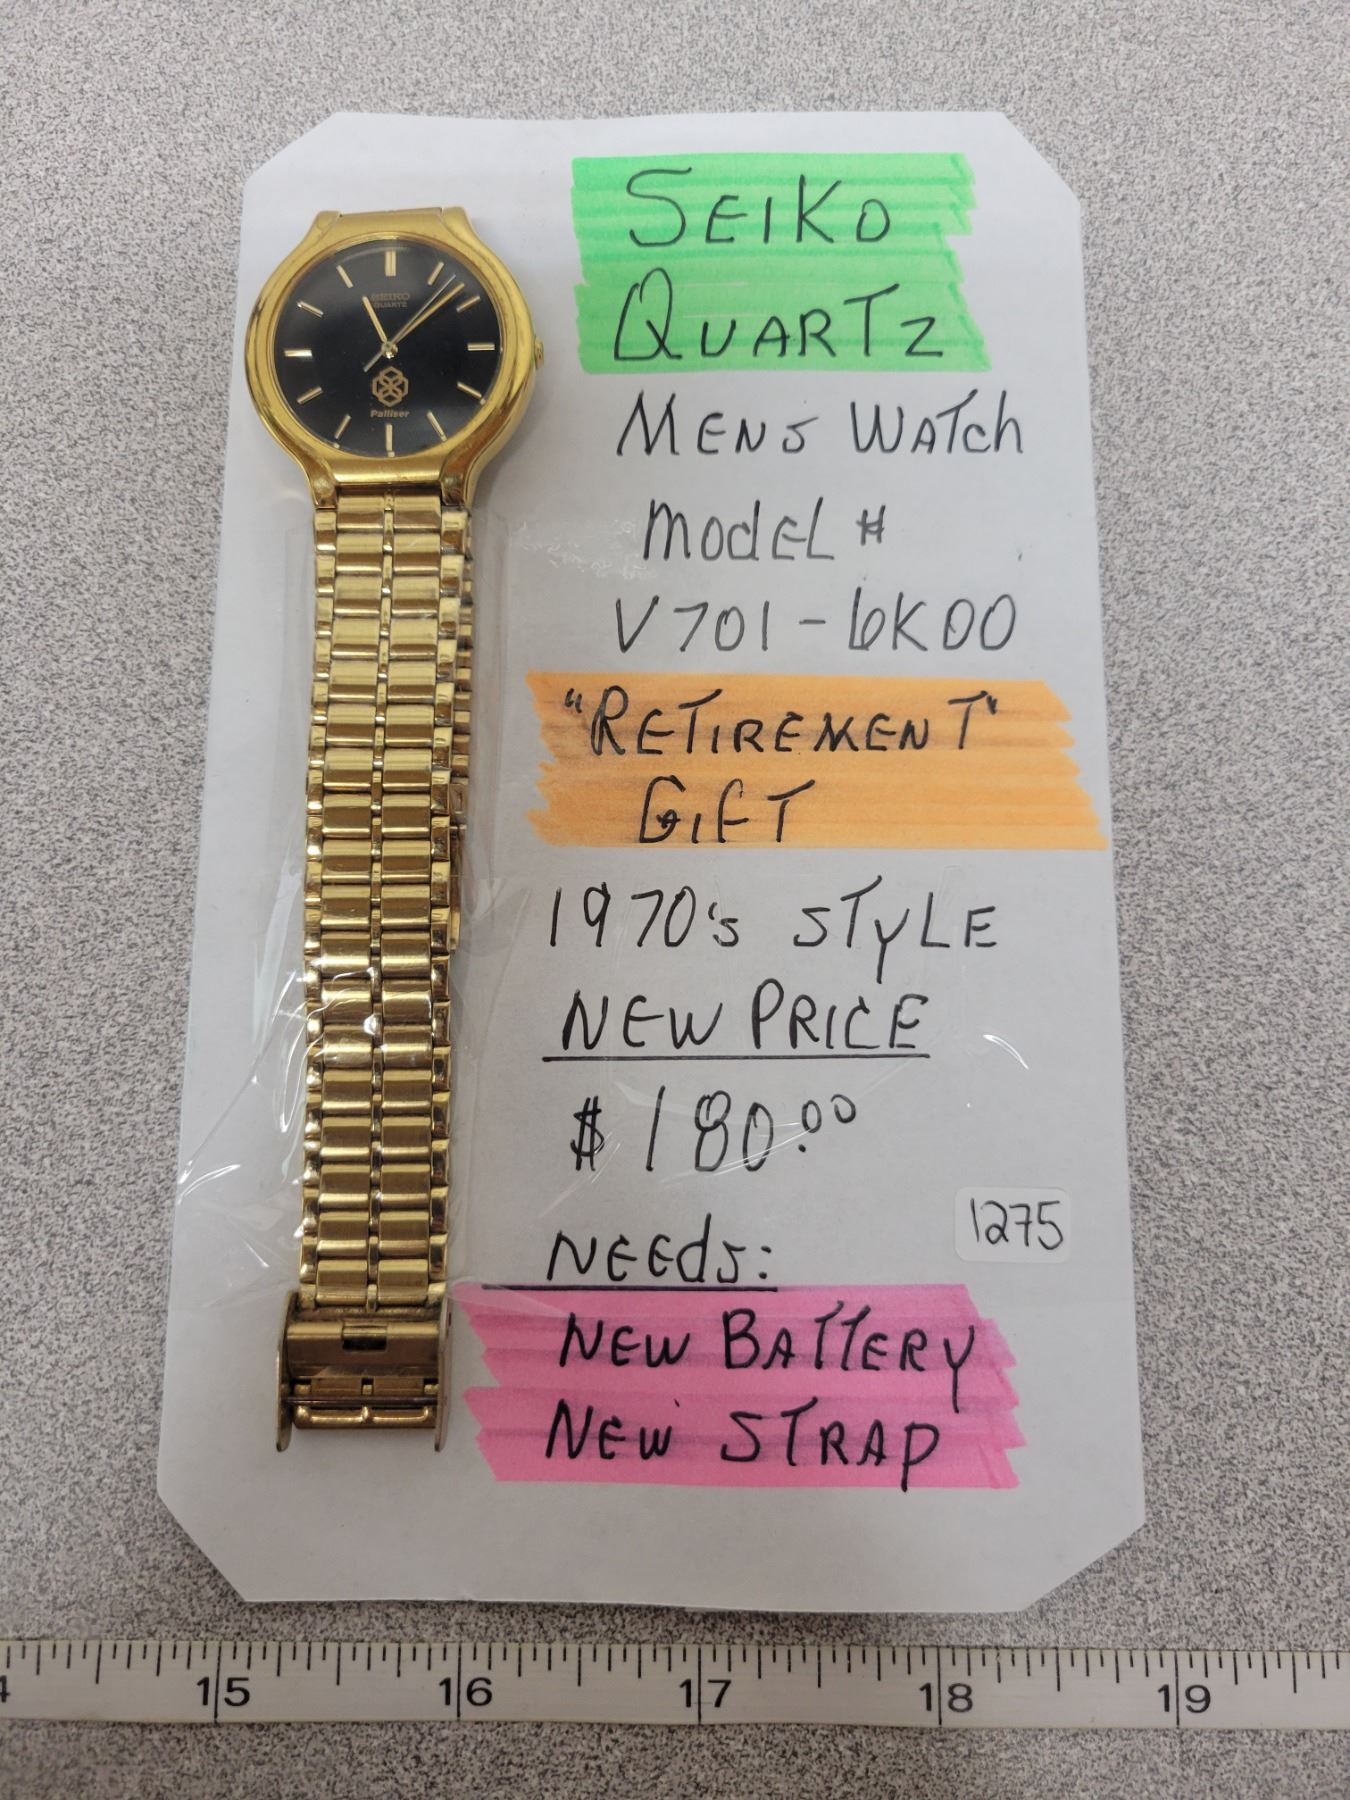 SEIKO
QUARTZ
Palliser
SEIKO
QUARTZ
MENS WATCH
MODEL #
V701-6K00
"RETIREMENT"
GIFT
1970's STYLE
NEW PRICE
$180.00
1275
NEEDS:
NEW BATTERY
NEW STRAP
15
16
17
18
19